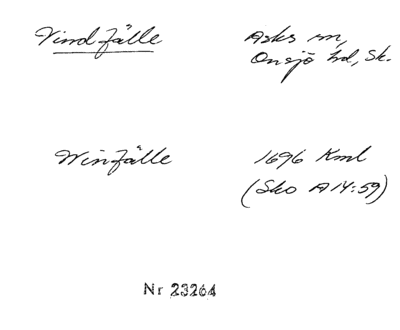 Vindfälle
Asks sn,
Onsjö hd, Sk.
Winfälle
1696 Kml
(Sko A14:59)
Nr 23264